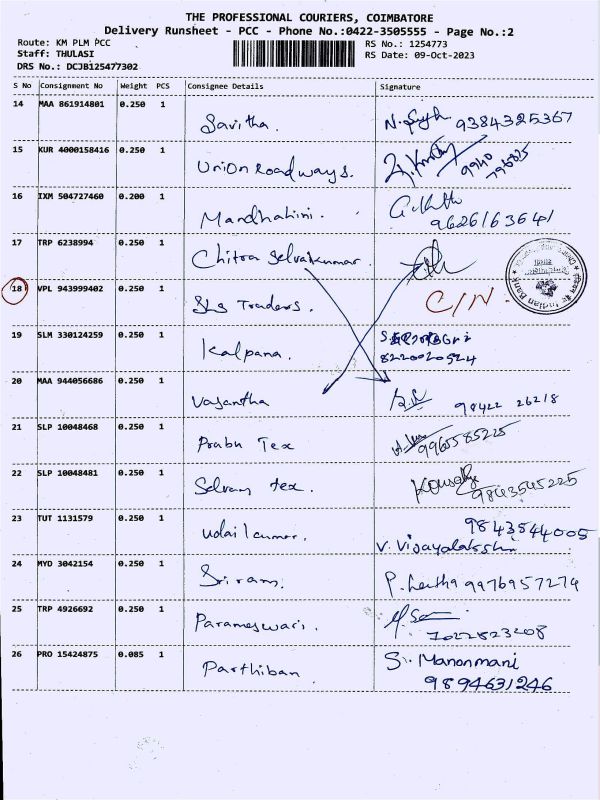 THE PROFESSIONAL COURIERS, COIMBATORE
Delivery Runsheet - PCC - Phone No.:0422-3505555 - Page No.:2
Route: KM PLM PCC
Staff: THULASI
DRS No.: DCJB125477302
RS No.: 1254773
RS Date: 09-Oct-2023
S No Consignment No Weight PCS Consignee Details Signature
14 MAA 861914801 0.250 1 Savitha. 9384325367
15 KUR 4000158416 0.250 1 Union Roadways. 9940
796825
16 IXM 504727460 0.200 1 Mandhahini.
9626163641
17 TRP 6238994 0.250 1 Chitra Selvakumar.
18 VPL 943999402 0.250 1 Sls Traders. C/N.
Indian Bank
19 SLM 330124259 0.250 1 Kalpana.
8220020524
20 MAA 944056686 0.250 1 Vasantha 98422 26218
21 SLP 10048468 0.250 1 Prabu Tex 9965585225
22 SLP 10048481 0.250 1 Selvam tex. 9843545225
23 TUT 1131579 0.250 1 Udaikumar. 9843544005
V. Vijayalakshmi
24 MYD 3042154 0.250 1 Sriram. 9976957274
25 TRP 4926692 0.250 1 Parameswari.
7022823208
26 PRO 15424875 0.085 1 Parthiban S. Manonmani
9894631246